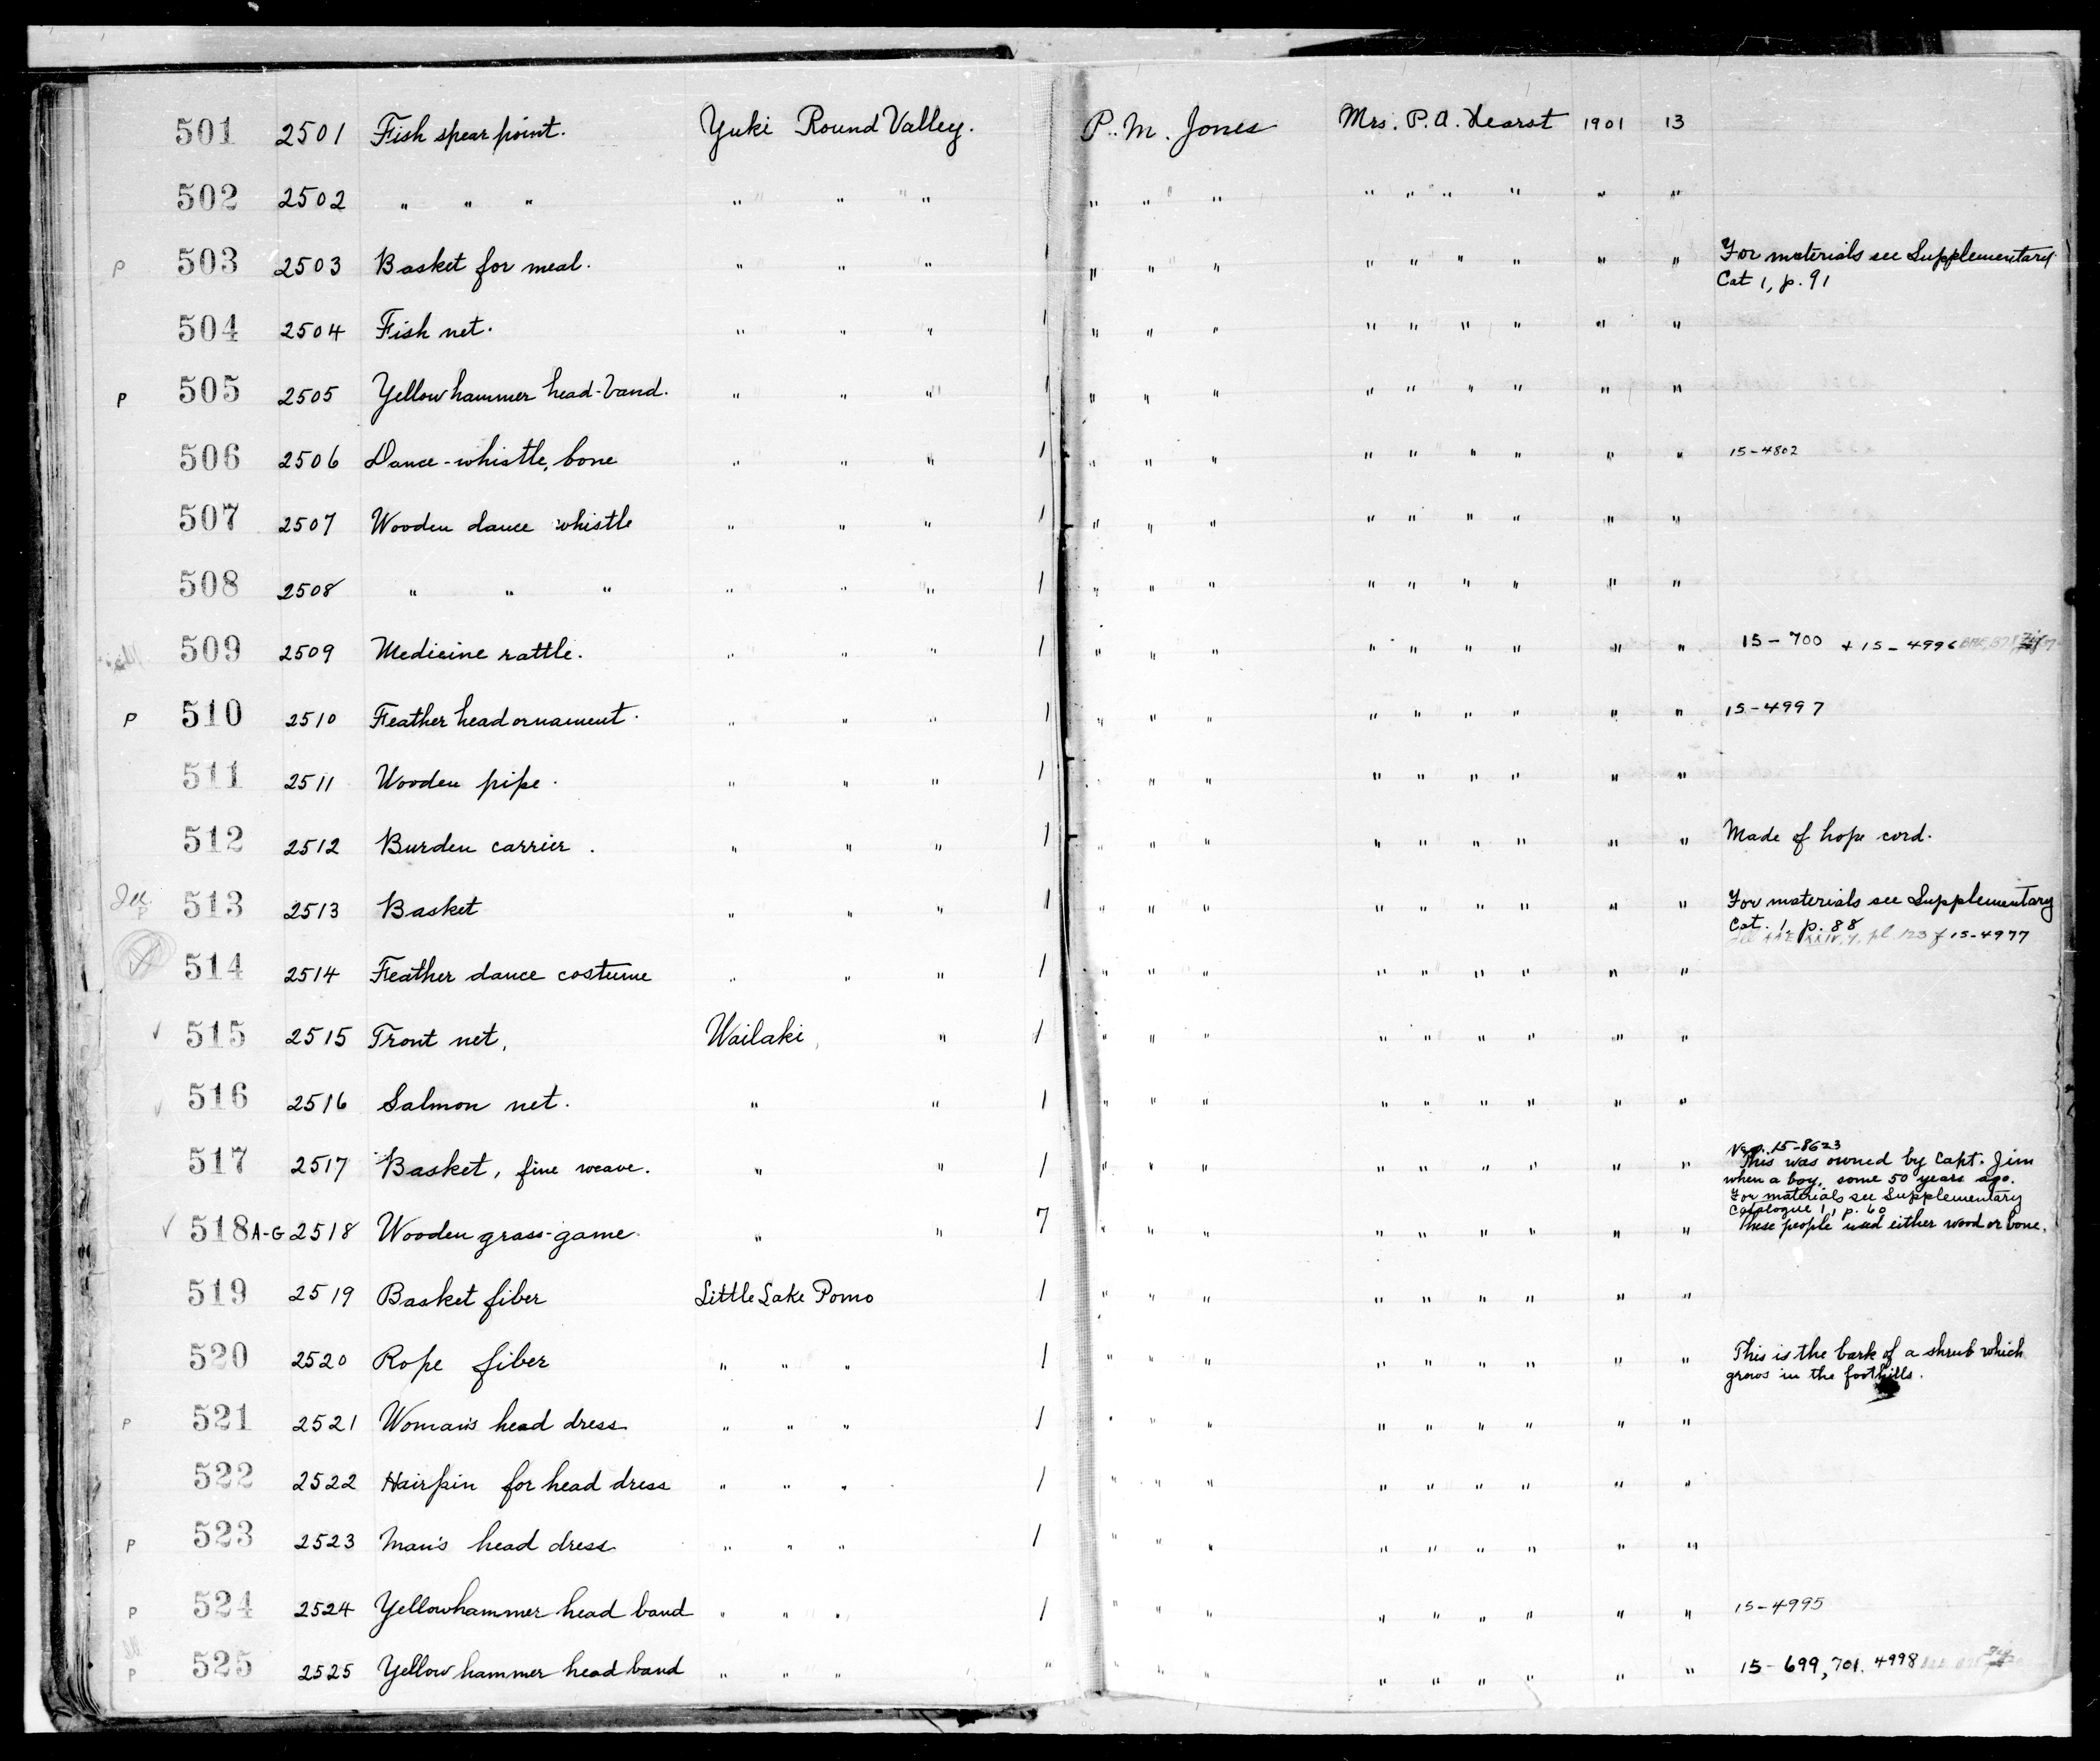 501 2501 Fish spear point. Yuki Round Valley. P. M. Jones Mrs. P. A. Hearst 1901 13
502 2502 " " " " " " " " " " " " " " "
P 503 2503 Basket for meal. " " " 1 " " " " " " " " " For materials see Supplementary
Cat 1, p. 91
504 2504 Fish net. " " " 1 " " " " " " " " "
P 505 2505 Yellowhammer head-band. " " " 1 " " " " " " " " "
506 2506 Dance-whistle, bone " " " 1 " " " " " " " " " 15-4802
507 2507 Wooden dance whistle " " " 1 " " " " " " " " "
508 2508 " " " " " " 1 " " " " " " " " "
509 2509 Medicine rattle. " " " 1 " " " " " " " " " 15-700 + 15-4996
P 510 2510 Feather head ornament. " " " 1 " " " " " " " " " 15-4997
511 2511 Wooden pipe. " " " 1 " " " " " " " " "
512 2512 Burden carrier. " " " 1 " " " " " " " " " Made of hope cord.
P 513 2513 Basket " " " 1 " " " " " " " " " For materials see Supplementary
Cat. 1, p. 88
pl. 123 f 15-4977
514 2514 Feather dance costume " " " 1 " " " " " " " " "
✓ 515 2515 Trout net, Wailaki, " 1 " " " " " " " " "
✓ 516 2516 Salmon net. " " 1 " " " " " " " " "
517 2517 Basket, fine weave. " " 1 " " " " " " " " " Neg. 15-8623
This was owned by Capt. Jim
when a boy, some 50 years ago.
For materials see Supplementary
Catalogue 1, p. 60
✓ 518 A-G 2518 Wooden grass-game. " " 7 " " " " " " " " " These people used either wood or bone.
519 2519 Basket fiber Little Lake Pomo 1 " " " " " " " " "
520 2520 Rope fiber " " " 1 " " " " " " " " " This is the bark of a shrub which
grows in the foothills.
P 521 2521 Woman's head dress " " " 1 " " " " " " " " "
522 2522 Hairpin for head dress " " " 1 " " " " " " " " "
P 523 2523 Man's head dress " " " 1 " " " " " " " " "
P 524 2524 Yellowhammer head band " " " 1 " " " " " " " " " 15-4995
P 525 2525 Yellowhammer head band " " " " " " " " " " " " " 15-699, 701, 4998